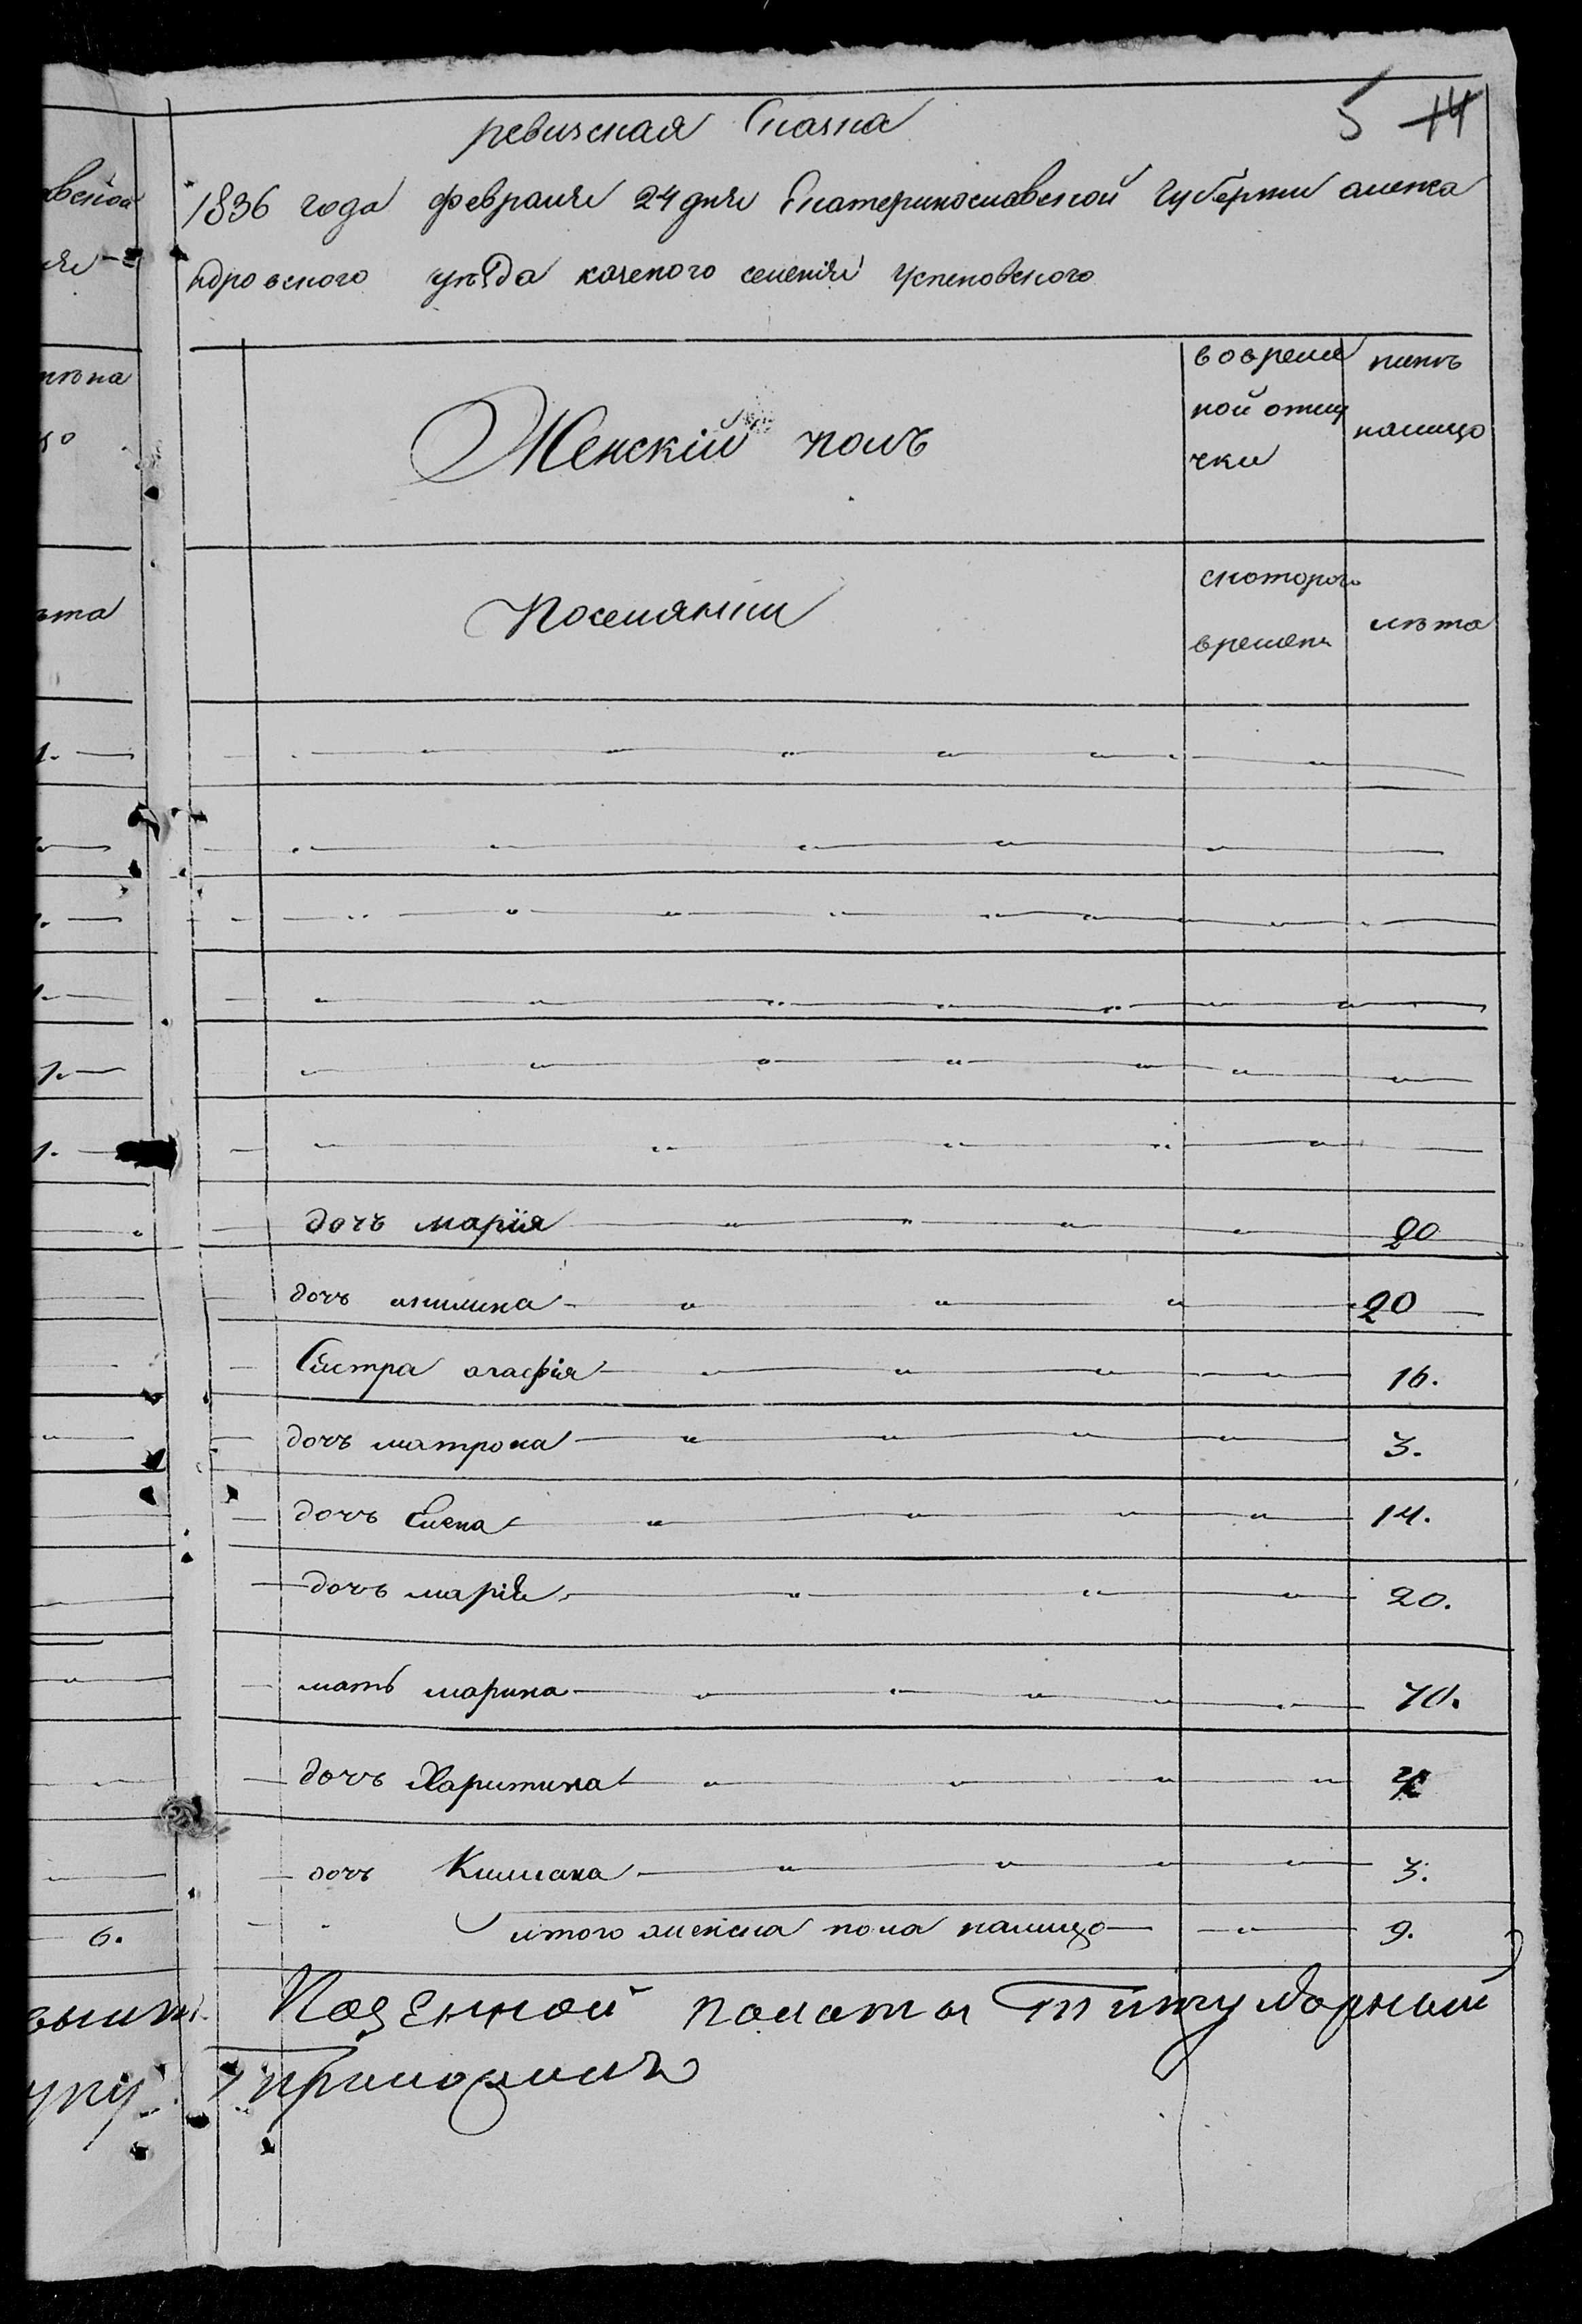 ревизская Сказка
5 14
1836 года февраля 24 дня Екатеринославской Губерти алекса
ндровского уезда казеного селенія Успеновского
Женскій полъ
вовреме
ной отлу
чки
ныне
налицо
Поселянки
скоторого
времени
лѣта
дочъ марія 20
дочъ акилина 20
Систра агафія 16.
дочъ матрона 3.
дочъ Елена 14.
дочъ марія 20.
мать марина 70.
дочъ Харитина
дочъ Килиана 3.
итого женска пола налицо 9.
6.
Казенной палаты Титулярный